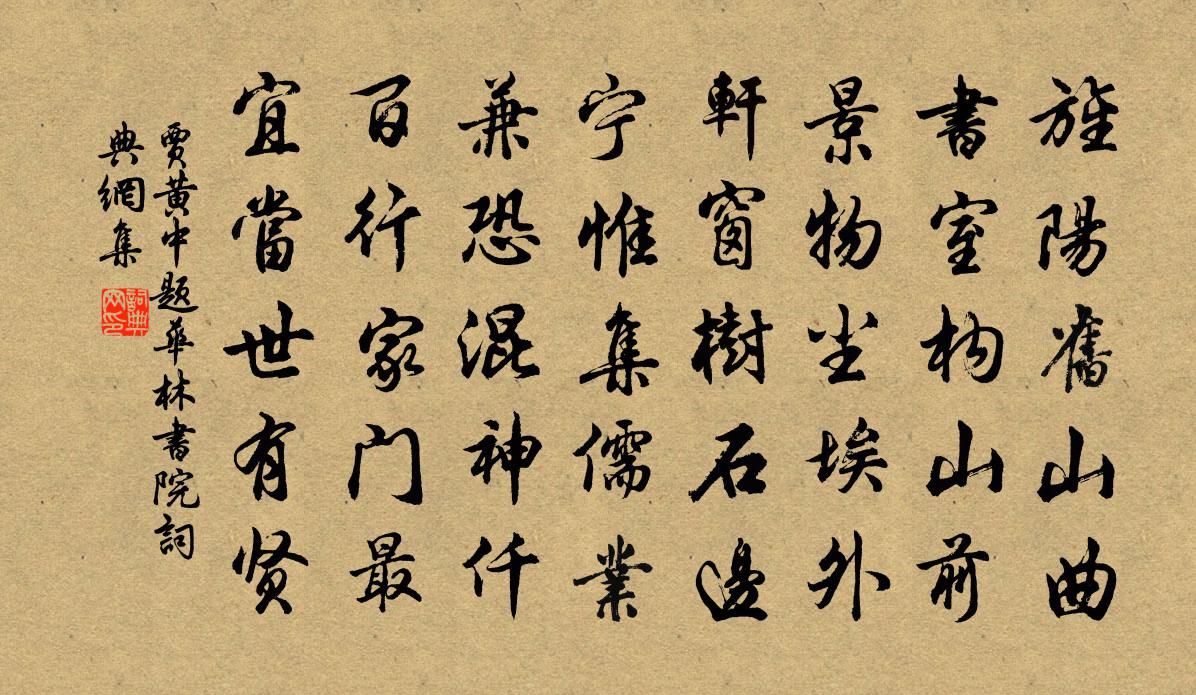 旌陽舊山曲
書室构山前
景物尘埃外
軒窗樹石邊
宁惟集儒業
兼恐混神仟
百行家门最
宜當世有贤
贾黄中題華林書院詞
典網集
詞典
网印